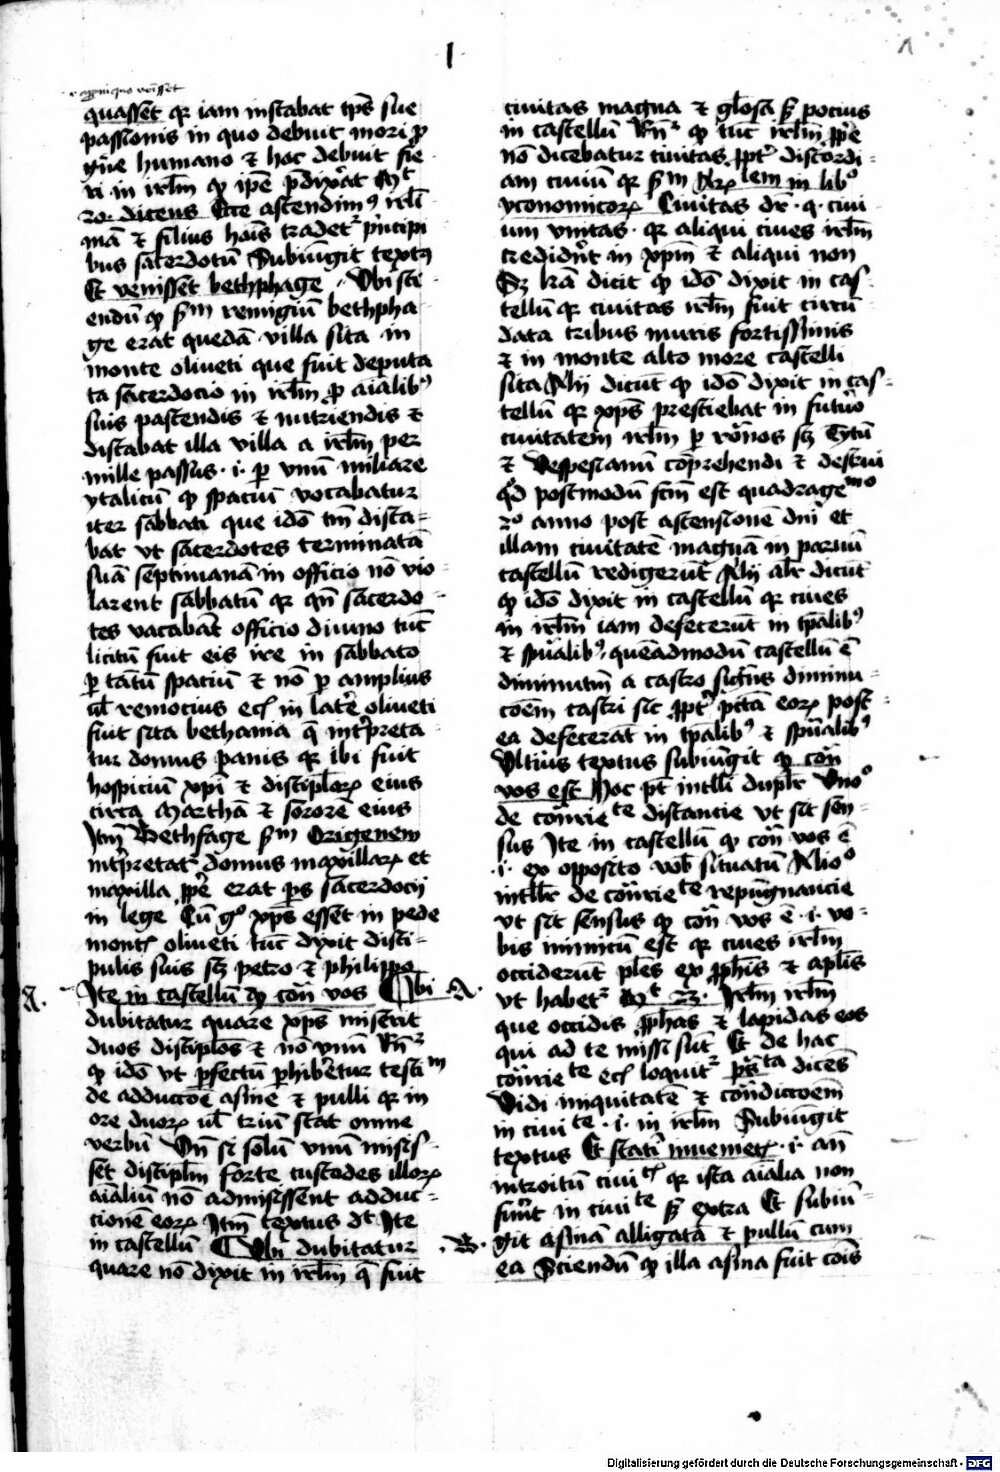 1
quassēt qꝛ iam instabat tp̄s sue
passionis in quo debuit mori ꝓ
gn̄e humano ⁊ hoc debuit fie
ri in irl̄m ꝙ ip̄e p̄dix̄at Mt
20. dicens Ecce ascendimꝰ irl̄i
mā ⁊ filius hoīs tradetᷣ pͥncipi
bus sac̄erdotū Subiūgit textꝰ
Et venissēt bethphage Vbi sci
endū ꝙ s̄m remigiū bethpha
ge erat quedā villa sita in
monte oliueti que fuit deputa
ta sac̄erdocio in irl̄m ꝓ aīalibꝰ
suis pascendis ⁊ nutriendis ⁊
distabat illa villa a irl̄m per
mille passus .i. ꝑ vnū miliare
ytalicū ꝙ spaciū vocabatur
iter sabbati que idō tm̄ dista=
bat vt sac̄erdotes terminatā
suā septimanā in officio nō vio
larent sabbatū qꝛ qn̄ sac̄erdo
tes vacabāt officio diuino tūc
licitū fuit eis ire in sabbato
ꝑ tātū spaciū ⁊ nō ꝑ amplius
ul̄ remocius eciā in lat̄e oliueti
fuit sita bethania q̄ intp̄reta
tur domus panis qꝛ ibi fuit
hospiciū xp̄i ⁊ discipl̄oꝝ eius
circa Marthā ⁊ sororē eius
Itm̄ Bethfage s̄m Origenem
intp̄retatᷣ domus maxillaꝝ et
maxilla ꝓp̄e erat p̄s sac̄erdocij
in lege Cū gͦ xp̄s esset in pede
montꝭ oliueti tūc dixit disci=
pulis suis sꝫ petro ⁊ philippo
A. Ite in castellū ꝙ cōn̄ vos Vbi
dubitatur quare xp̄s miserit
duos discipl̄os ⁊ nō vnū Rn̄ᷣ
ꝙ idō vt ꝑfectū ꝑhib̄etur testim
de adductōe asine ⁊ pulli qꝛ in
ore duoꝝ ul̄ triū stat omne
verbū Vn̄ si solū vnū misis=
set discipl̄m forte custodes illoꝝ
aīaliū nō admisissent adduc=
cionē eoꝝ Itm̄ textus dt̄ Ite
in castellū Vn̄ dubitatur
quare nō dixit in irl̄m q̄ fuit
ciuitas magna ⁊ gl̄osa s̄ pocius
in castellū Rn̄ᷣ ꝙ tūc irl̄m ꝓp̄e
nō dicebatur ciuitas ꝓptᷣ discordi=
am ciuiū qꝛ s̄m Arꝝ lem in libͦ
yconomicoꝝ Ciuitas dr̄ .q. ciui
um vnitas. qꝛ aliqui ciues irl̄m
credidn̄t in xp̄m ⁊ aliqui non
Sꝫ līa dicit ꝙ idō dixit in cas=
tellū qꝛ ciuitas irl̄m fuit circū
data tribus muris fortissimis
⁊ in monte alto more castelli
sita Alij dicūt ꝙ idō dixit in cas=
tellū qꝛ xp̄s presciebat in futuro
ciuitatem irl̄m ꝑ rōnos sꝫ Tytū
⁊ Vespesianū cōprehendi ⁊ destrui
qd̄ postmodū fcm̄ est quadragemo
2o anno post ascensionē dni et
illam ciuitatē magnā in paruū
castellū redigerūt Alij alr̄ dicūt
ꝙ idō dixit in castellū qꝛ ciues
in irl̄m iam defecerūt in tp̄alibꝰ
⁊ sp̄ualibꝰ, quēadmodū castellū ē
diminutm̄ a castro sic̄ns diminu=
cōem castri sic ꝓptᷣ pctā eoꝝ post
ea defecerāt in tp̄alibꝰ ⁊ sp̄ualibꝰ
Vlterius textus subiūgit ꝙ cōn̄
vos est Hoc pt̄ intelli duplr̄ Vnoͦ
de cōn̄riete distancie vt sit sen=
sus Ite in castellū ꝙ cōn̄ vos ē
.i. ex opposito vob̄ situatū Alioͦ
intllr̄ de cōn̄rietē repūgnancie
vt sit sensus ꝙ cōn̄ vos ē .i. vo=
bis inimicū est qꝛ ciues irl̄m
occiderūt pl̄es ex ꝓph̄is ⁊ apl̄is
vt habetᷣ Mt 23. Irl̄m irl̄m
que occidis ꝓph̄as ⁊ lapidas eos
qui ad te missi sūt Et de hac
cōn̄riete eciā loquitᷣ ps̄ta dicēs
Vidi iniquitatē ⁊ cōn̄diccoēm
in ciuite .i. in irl̄m Subiūgit
textus Et stati inuenietꝭ .i. an̄
introitū ciuitꝭ qꝛ ista aīalia non
fuūt in ciuite s̄ extra Et subiū=
B. git asinā alligatā ⁊ pullū cum
ea Sciendū ꝙ illa asina fuit cōis
Digitalisierung gefördert durch die Deutsche Forschungsgemeinschaft - DFG